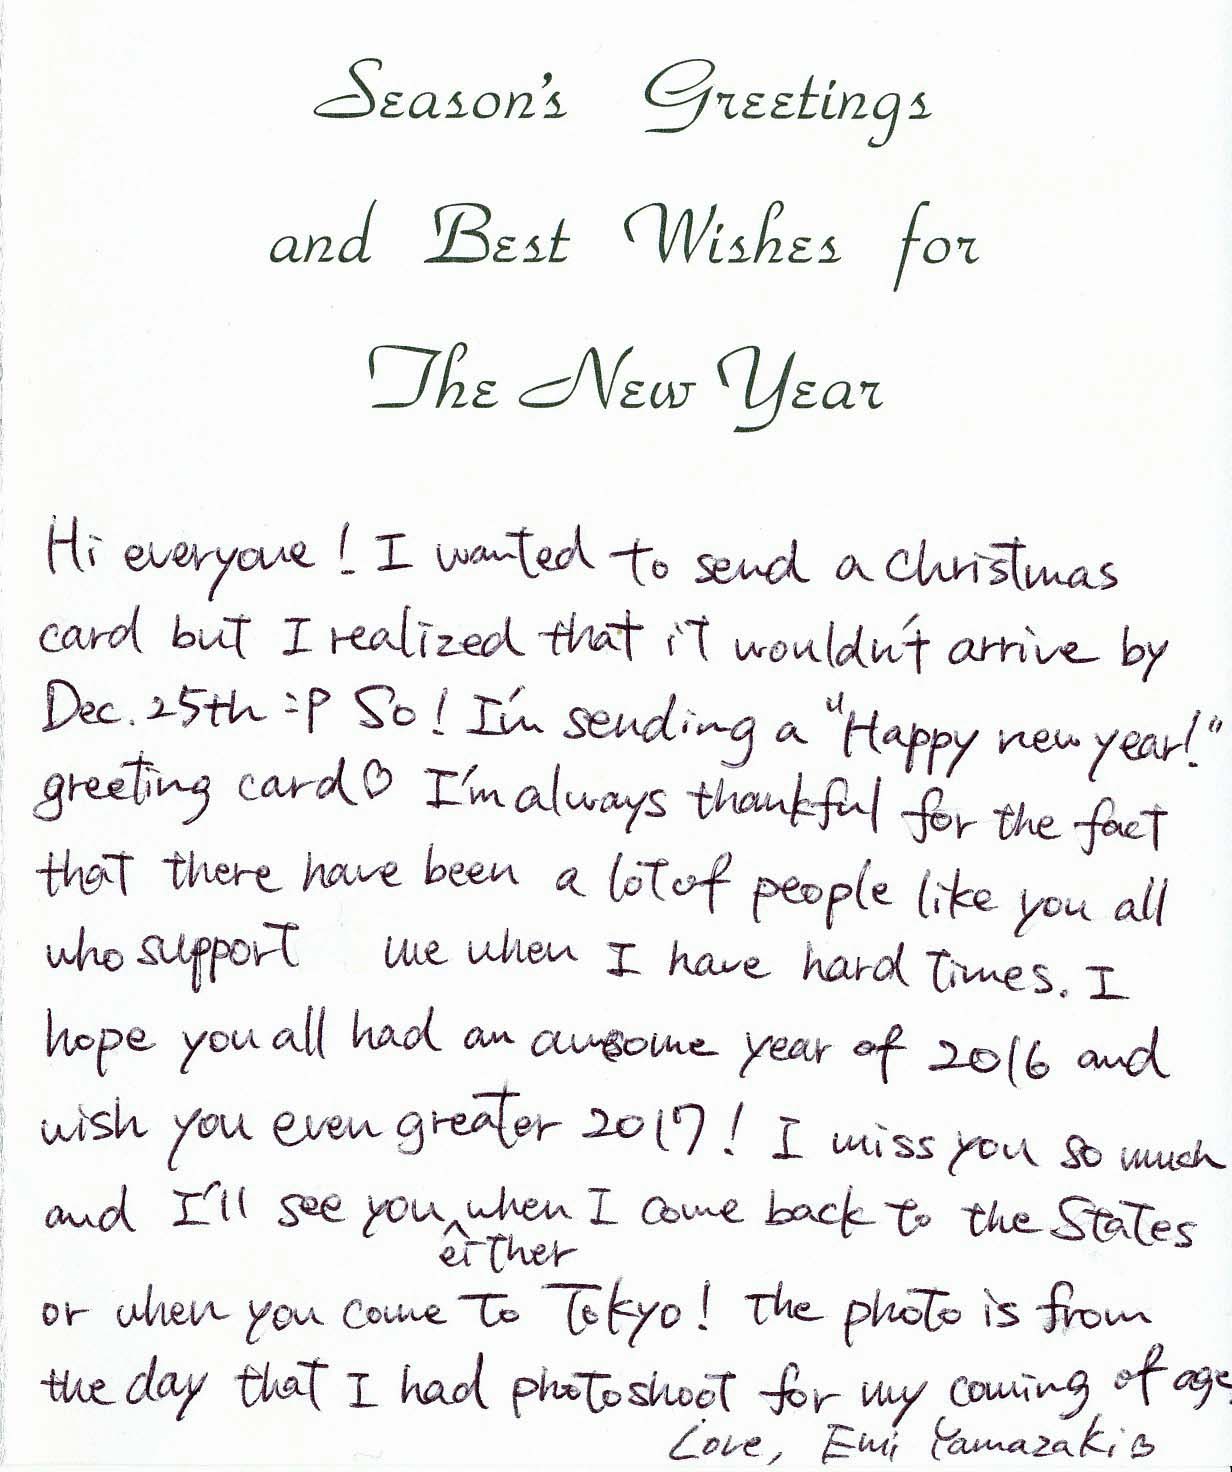 Season's Greetings
and Best Wishes for
The New Year
Hi everyone! I wanted to send a christmas
card but I realized that it wouldn't arrive by
Dec. 25th =P So! I'm sending a "Happy new year!"
greeting card♡ I'm always thankful for the fact
that there have been a lot of people like you all
who support me when I have hard times. I
hope you all had an awesome year of 2016 and
wish you even greater 2017! I miss you so much
and I'll see you ^ when I come back to the States
either
or when you come to Tokyo! The photo is from
the day that I had photoshoot for my coming of age.
Love, Emi Yamazaki♡